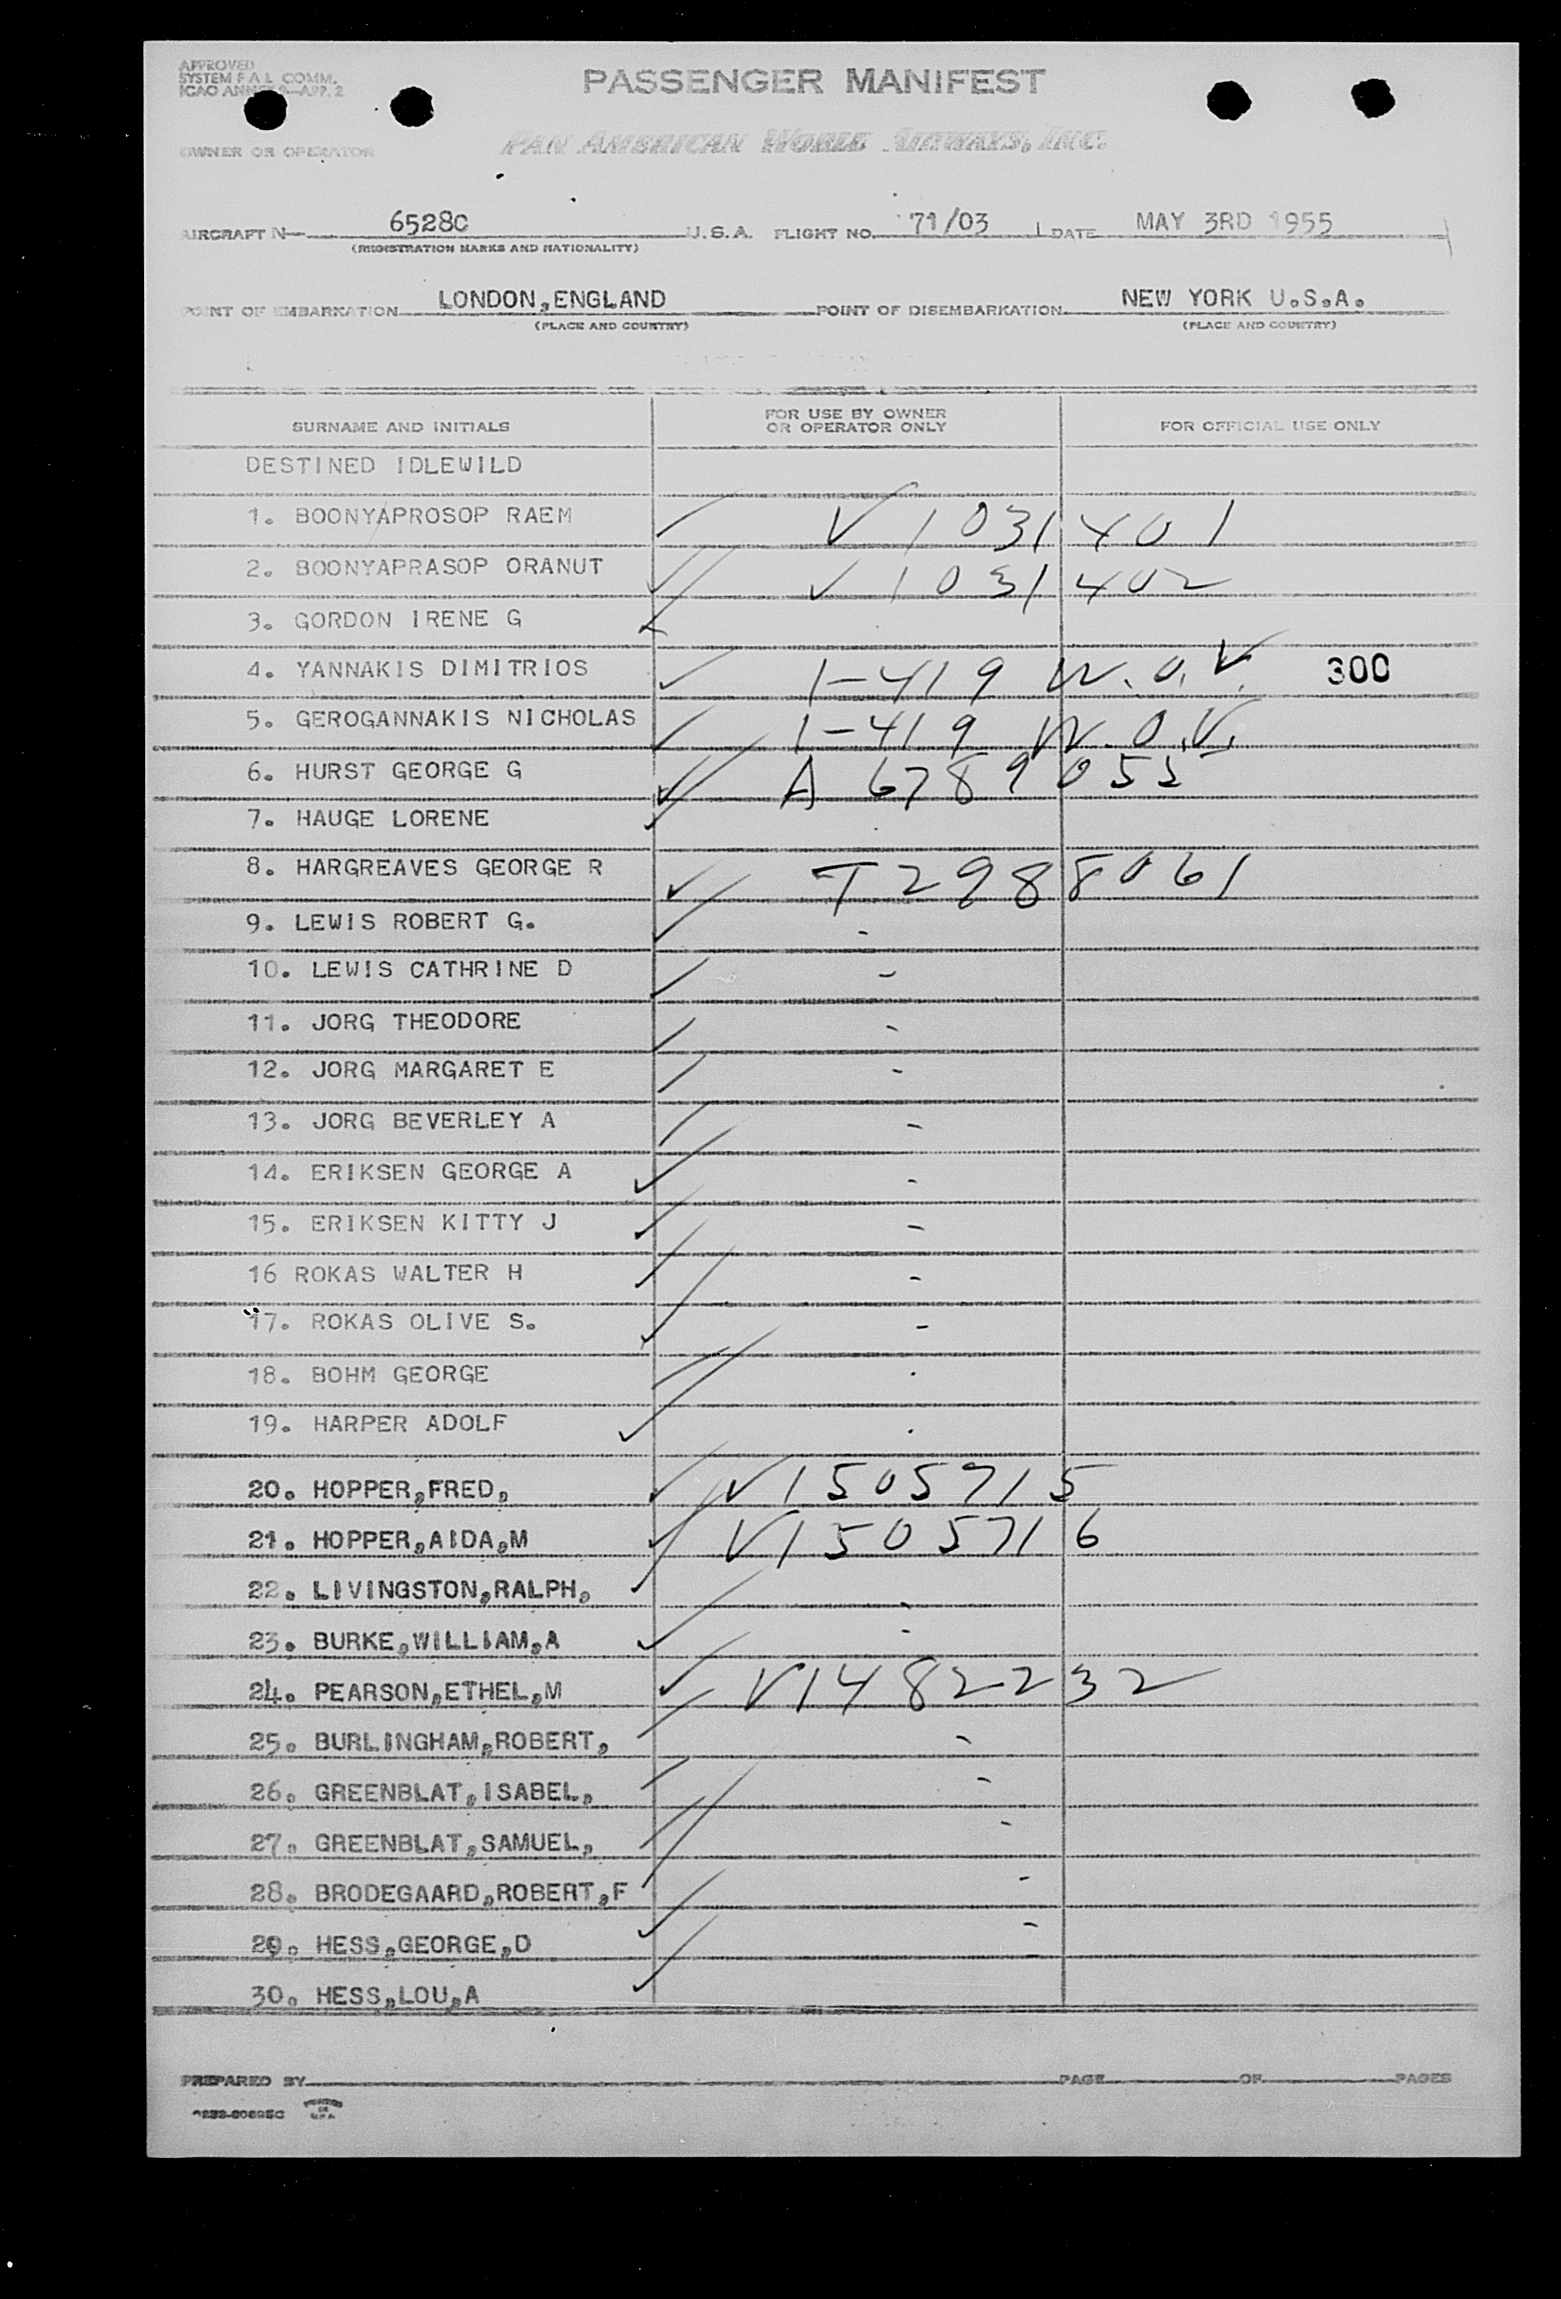 APPROVED
SYSTEM F A L COMM.
ICAO ANNEX 9—APP. 2
PASSENGER MANIFEST
OWNER OR OPERATOR
PAN AMERICAN WORLD AIRWAYS, INC.
AIRCRAFT N— 6528C U.S.A. FLIGHT NO. 71/03 DATE MAY 3RD 1955
(REGISTRATION MARKS AND NATIONALITY)
POINT OF EMBARKATION LONDON,ENGLAND POINT OF DISEMBARKATION NEW YORK U.S.A.
(PLACE AND COUNTRY) (PLACE AND COUNTRY)
SURNAME AND INITIALS FOR USE BY OWNER OR OPERATOR ONLY FOR OFFICIAL USE ONLY
DESTINED IDLEWILD
1. BOONYAPROSOP RAEM ✓ V 1031401
2. BOONYAPRASOP ORANUT ✓ V 1031402
3. GORDON IRENE G ✓
4. YANNAKIS DIMITRIOS ✓ 1-419 W.O.V. 300
5. GEROGANNAKIS NICHOLAS ✓ 1-419 W.O.V.
6. HURST GEORGE G ✓ A 6789055
7. HAUGE LORENE ✓
8. HARGREAVES GEORGE R ✓ T2988061
9. LEWIS ROBERT G. ✓ -
10. LEWIS CATHRINE D ✓ -
11. JORG THEODORE ✓ -
12. JORG MARGARET E ✓ -
13. JORG BEVERLEY A ✓ -
14. ERIKSEN GEORGE A ✓ -
15. ERIKSEN KITTY J ✓ -
16 ROKAS WALTER H ✓ -
17. ROKAS OLIVE S. ✓ -
18. BOHM GEORGE ✓
19. HARPER ADOLF ✓
20. HOPPER,FRED, ✓ V1505715
21. HOPPER,AIDA,M ✓ V1505716
22. LIVINGSTON,RALPH, ✓ -
23. BURKE,WILLIAM,A ✓ -
24. PEARSON,ETHEL,M ✓ V1482232
25. BURLINGHAM,ROBERT, ✓ -
26. GREENBLAT,ISABEL, ✓ -
27. GREENBLAT,SAMUEL, ✓ -
28. BRODEGAARD,ROBERT,F ✓ -
29. HESS,GEORGE,D ✓ -
30. HESS,LOU,A ✓ -
PREPARED BY PAGE OF PAGES